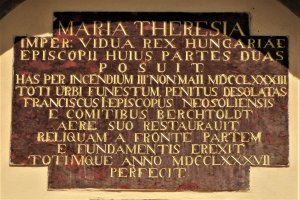 MARIA THERESIA
IMPER: VIDUA REX HUNGARIAE
EPISCOPII HUIUS PARTES DUAS
POSUIT
HAS PER INCENDIUM III NON MAII MDCCLXXXIII
TOTI URBI FUNESTUM, PENITUS DESOLATAS
FRANCISCUS I EPISCOPUS NEOSOLIENSIS
E COMITIBUS BERCHTOLDT
AERE SUO RESTAURAUIT
RELIQUAM A FRONTE PARTEM
E FUNDAMENTIS EREXIT
TOTUMQUE ANNO MDCCLXXXVII
PERFECIT